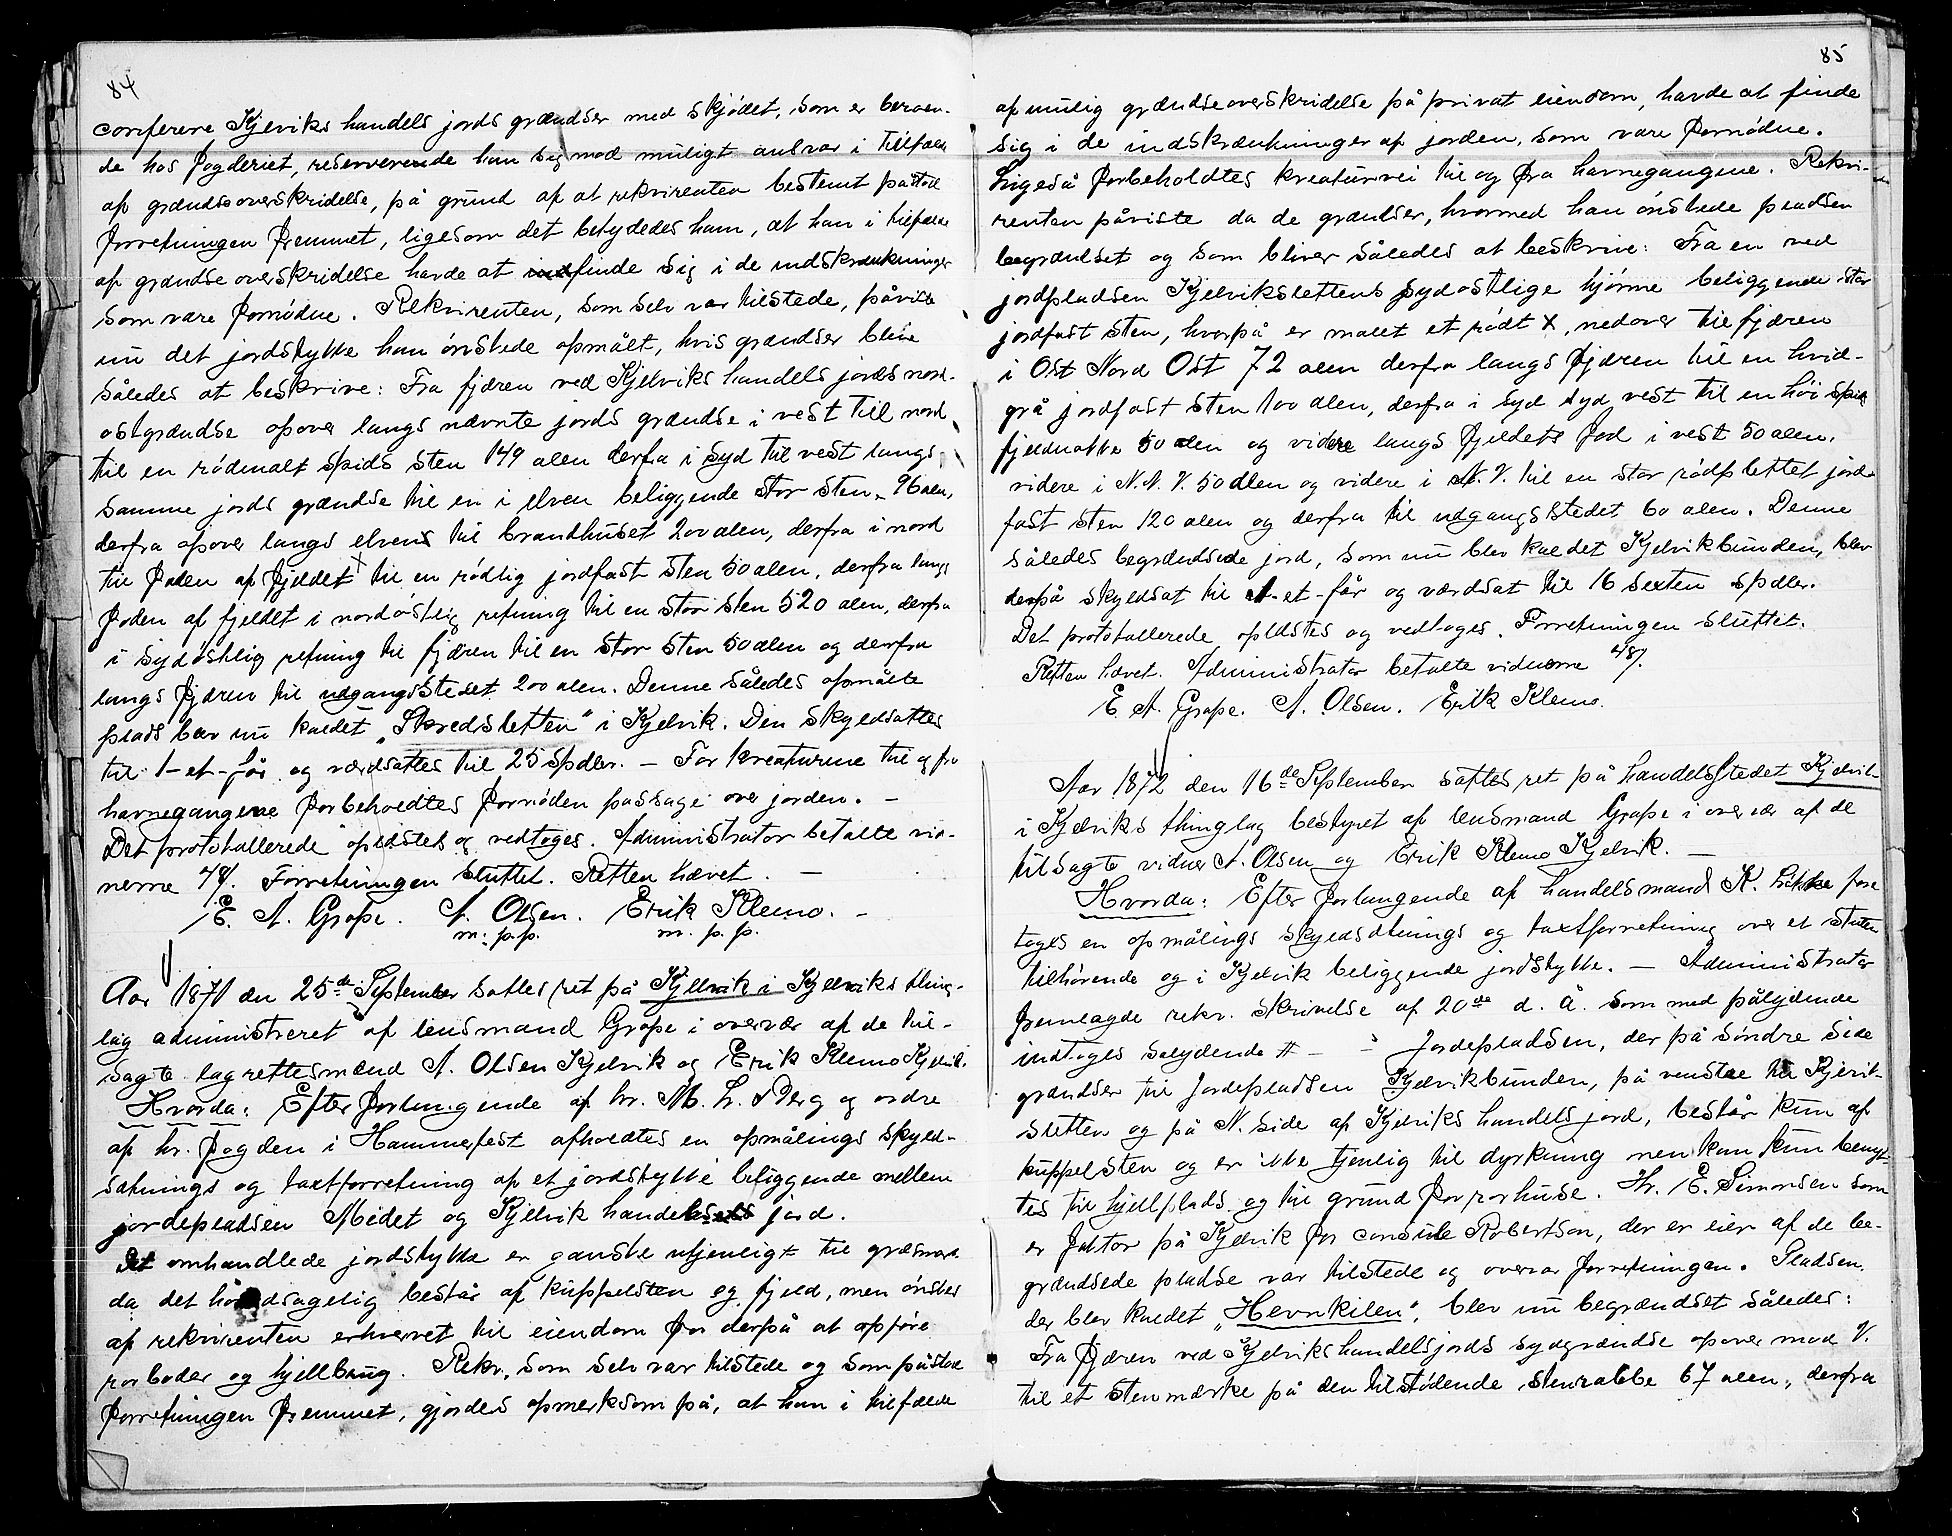 84
conferere Kjelviks handels jords grændser med skjødet, som er beroen-
de hos fogderiet, reserverende han sig mod muligt ansvar i tilfælde
af grændseoverskridelse, på grund af at rekvirenten bestemt påstod
forretningen fremmet, ligesom det betydedes ham, at han i tilfælde
af grændseoverskridelse havde at finde sig i de indskrænkninger
som være fornødne. Rekvirenten, som selv var tilstede, påviste
nu det jordstykke han ønskede opmålt, hvis grændser blive
således at beskrive: Fra fjæren ved Kjelviks handels jords nord-
ostgrændse opover langs nævnte jords grændse i vest til nord
til en rødmalt spids sten 149 alen derfra i syd til vest langs
samme jords grændse til en i elven beliggende stor sten 96 alen,
derfra opover langs elven til brændhuset 200 alen, derfra i nord
til foden af fjeldet til en rødlig jordfast sten 50 alen, derfra langs
foden af fjeldet i nordøstlig retning til en stor sten 520 alen, derfra
i sydøstlig retning til fjæren til en stor sten 50 alen og derfra
langs fjæren til udgangsstedet 200 alen. Denne således opmålte
plads blev nu kaldet „Skredsletten" i Kjelvik. Den skyldsattes
til 1-et-får og værdsattes til 25 spdlr. — For kreaturene til og fra
havnegangene forbeholdtes fornøden passage over jorden. —
Det protokollerede oplæstes og vedtoges. Administrator betalte vid-
nerne 48/. Forretningen sluttet. Retten hævet. —
E. A. Grape. A. Olsen. Erik Klemo. —
m. p. p. m. p. p.
Aar 1871 den 25de September sattes ret på Kjelvik i Kjelviks thing-
lag administreret af lensmand Grape i overvær af de til-
sagte lagrettesmænd A. Olsen Kjelvik og Erik Klemo Kjelvik.
Hvorda: Efter forlangende af hr. M. L. Berg og ordre
af hr. fogden i Hammerfest afholdtes en opmålings skyld-
sætnings og taxtforretning af et jordstykke beliggende mellem
jordepladsen Medet og Kjelvik handels jord.
Det omhandlede jordstykke er ganske utjenligt til græsmark
da det hovedsagelig består af kuppelsten og fjeld, men ønskes
af rekvirenten erhvervet til eiendom for derpå at opføre
rorboder og hjellbrug. Rekv., som selv var tilstede og som påstod
forretningen fremmet, gjordes opmerksom på, at han i tilfælde
85
af mulig grændseoverskridelse på privat eiendom, havde at finde
sig i de indskrænkninger af jorden, som være fornødne.
Ligeså forbeholdtes kreaturvei til og fra havnegangene. Rekvi-
renten påviste da de grændser, hvormed han ønskede pladsen
begrændset og som bliver således at beskrive: Fra en ved
jordpladsen Kjelvikslettens sydostlige hjørne beliggende stor
jordfast sten, hvorpå er malet et rødt X, nedover til fjæren
i Ost Nord Ost 72 alen derfra langs fjæren til en hvid-
grå jordfast sten 100 alen, derfra i syd syd vest til en høi spids
fjeldnakke 50 alen og videre langs fjeldets fod i vest 50 alen,
videre i N. N. V. 50 alen og videre i N. V. til en stor rødplettet jord-
fast sten 120 alen og derfra til udgangsstedet 60 alen. Denne
således begrændsede jord, som nu blev kaldet Kjelvikbunden, blev
derpå skyldsat til 1-et-får og værdsat til 16 sexten spdlr.
Det protokollerede oplæstes og vedtoges. Forretningen sluttet.
Retten hævet. Administrator betalte vidnerne 48/.
E. A. Grape. A. Olsen. Erik Klemo.
Aar 1872 den 16de September sattes ret på handelsstedet Kjelvik
i Kjelviks thinglag bestyret af lensmand Grape i overvær af de
tilsagte vidner A. Olsen og Erik Klemo Kjelvik. —
Hvorda: Efter forlangende af handelsmand K. Likke fore
toges en opmålings skyldsætnings og taxtforretning over et staten
tilhørende og i Kjelvik beliggende jordstykke. — Administrator
fremlagde rekv. skrivelse af 20de d. å. som med pålydende
indtoges salydende # — Jordepladsen, der på søndre side
grændser til Jordepladsen Kjelvikbunden, på venstre til Kjelvik-
sletten og på N. side af Kjelviks handelsjord, består kun af
kuppelsten og er ikke tjenlig til dyrkning men kan kun benyt-
tes til hjellplads og til grund for rorhuse. Hr. E. Simonsen som
er faktor på Kjelvik for consul Robertson, der er eier af de be-
grændsede pladse var tilstede og overvar forretningen. Pladsen,
der blev kaldet „Hevnkilen", blev nu begrændset således:
Fra fjæren ved Kjelvikshandelsjords sydgrændse opover mod V.
til et stenmærke på den tilstødende stenrabbe 67 alen, derfra